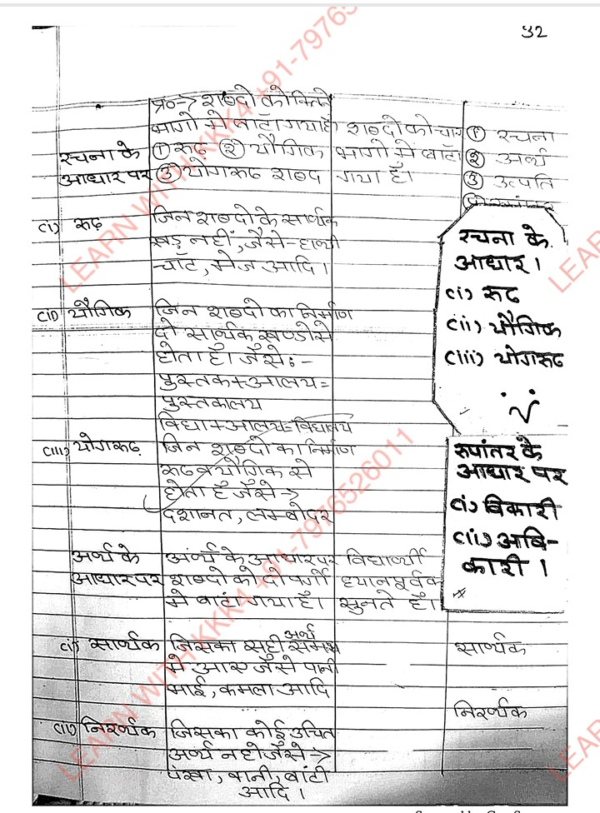 32
प्र०-> शब्दो को कितने
भागो मे बाँटा गया है शब्दो को चार ① रचना
रचना के ① रूढ़ ② यौगिक भागो मे बाँटा ② अर्थ
आधार पर ③ योगरूढ शब्द गया है। ③ उत्पति
(i) रूढ़ जिन शब्दो के सार्थक
खड़ नही, जैसे-हाथी
चाँट, मेज आदि।
रचना के
आधार।
(i) रूढ
(ii) यौगिक
(iii) योगरूढ
(ii) यौगिक जिन शब्दो का निर्माण
दो सार्थक खण्डो से
होता है। जैसे:-
पुस्तक+आलय=
पुस्तकालय
विद्या+आलय=विद्यालय
(iii) योगरूढ़ जिन शब्दो का निर्माण
रूढ व यौगिक से
होता है जैसे->
दशानत, लम्बोदर
रुपांतर के
आधार पर
(i) विकारी
(ii) अवि-
कारी।
अर्थ के अर्थ के आधार पर विद्यार्थी
आधार पर शब्दो को दो वर्गो ध्यानपूर्वक
मे बाटा गया है। सुनते है।
(i) सार्थक जिसका सही अर्थ समझ सार्थक
मे आए जैसे पानी
भाई, कमला आदि
निरर्थक
(ii) निरर्थक जिसका कोई उचित
अर्थ न हो जैसे->
पंखा, वानी, बांटी
आदि।
LEARN WITH KKK4 +91-7976526011